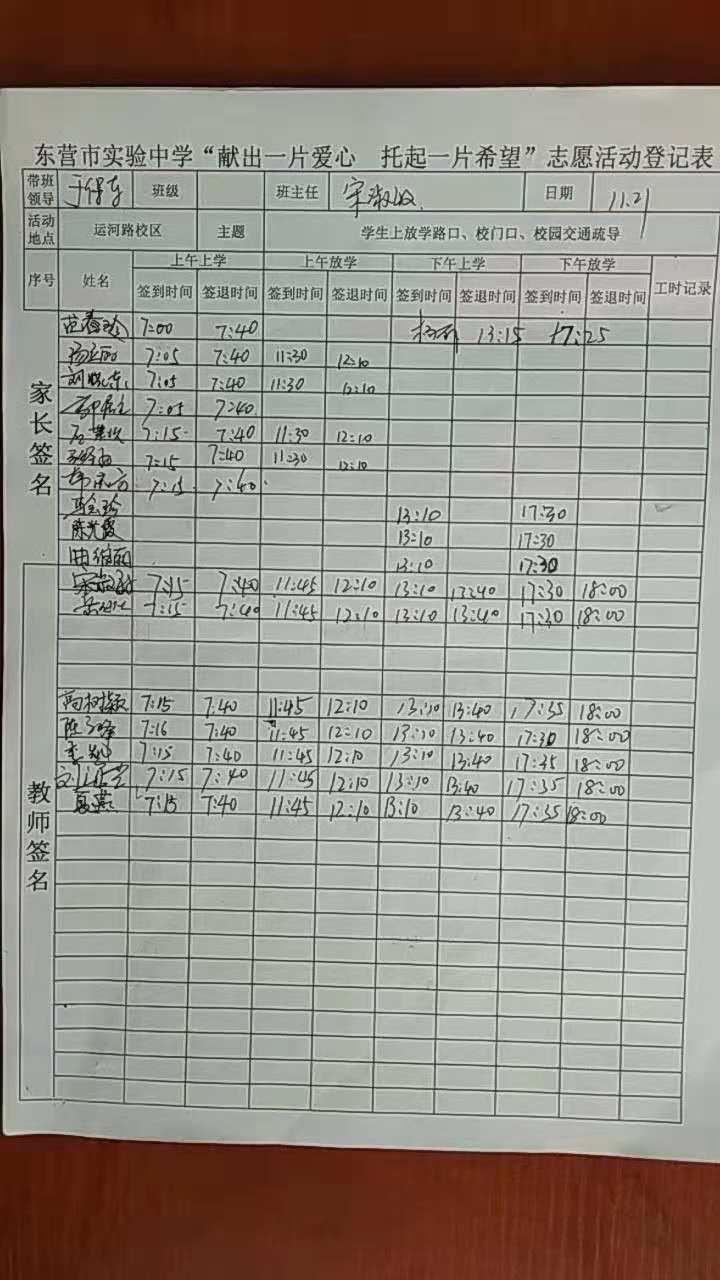 东营市实验中学“献出一片爱心 托起一片希望”志愿活动登记表
带班领导 班级 班主任 宋淑敏 日期 11.21
活动地点 运河路校区 主题 学生上放学路口、校门口、校园交通疏导
序号 姓名 上午上学 上午放学 下午上学 下午放学 工时记录
签到时间 签退时间 签到时间 签退时间 签到时间 签退时间 签到时间 签退时间
家长签名
7:00 7:40 13:15 17:25
7:05 7:40 11:30 12:10
7:05 7:40 11:30 12:10
7:05 7:40
7:15 7:40 11:30 12:10
7:15 7:40 11:30 12:10
7:15 7:40
13:10 17:30
陈光霞 13:10 17:30
13:10 17:30
教师签名
7:15 7:40 11:45 12:10 13:10 13:40 17:30 18:00
7:15 7:40 11:45 12:10 13:10 13:40 17:30 18:00
高树颖 7:15 7:40 11:45 12:10 13:10 13:40 17:35 18:00
7:16 7:40 11:45 12:10 13:10 13:40 17:30 18:00
7:15 7:40 11:45 12:10 13:10 13:40 17:35 18:00
7:15 7:40 11:45 12:10 13:10 13:40 17:35 18:00
夏燕 7:15 7:40 11:45 12:10 13:10 13:40 17:35 18:00